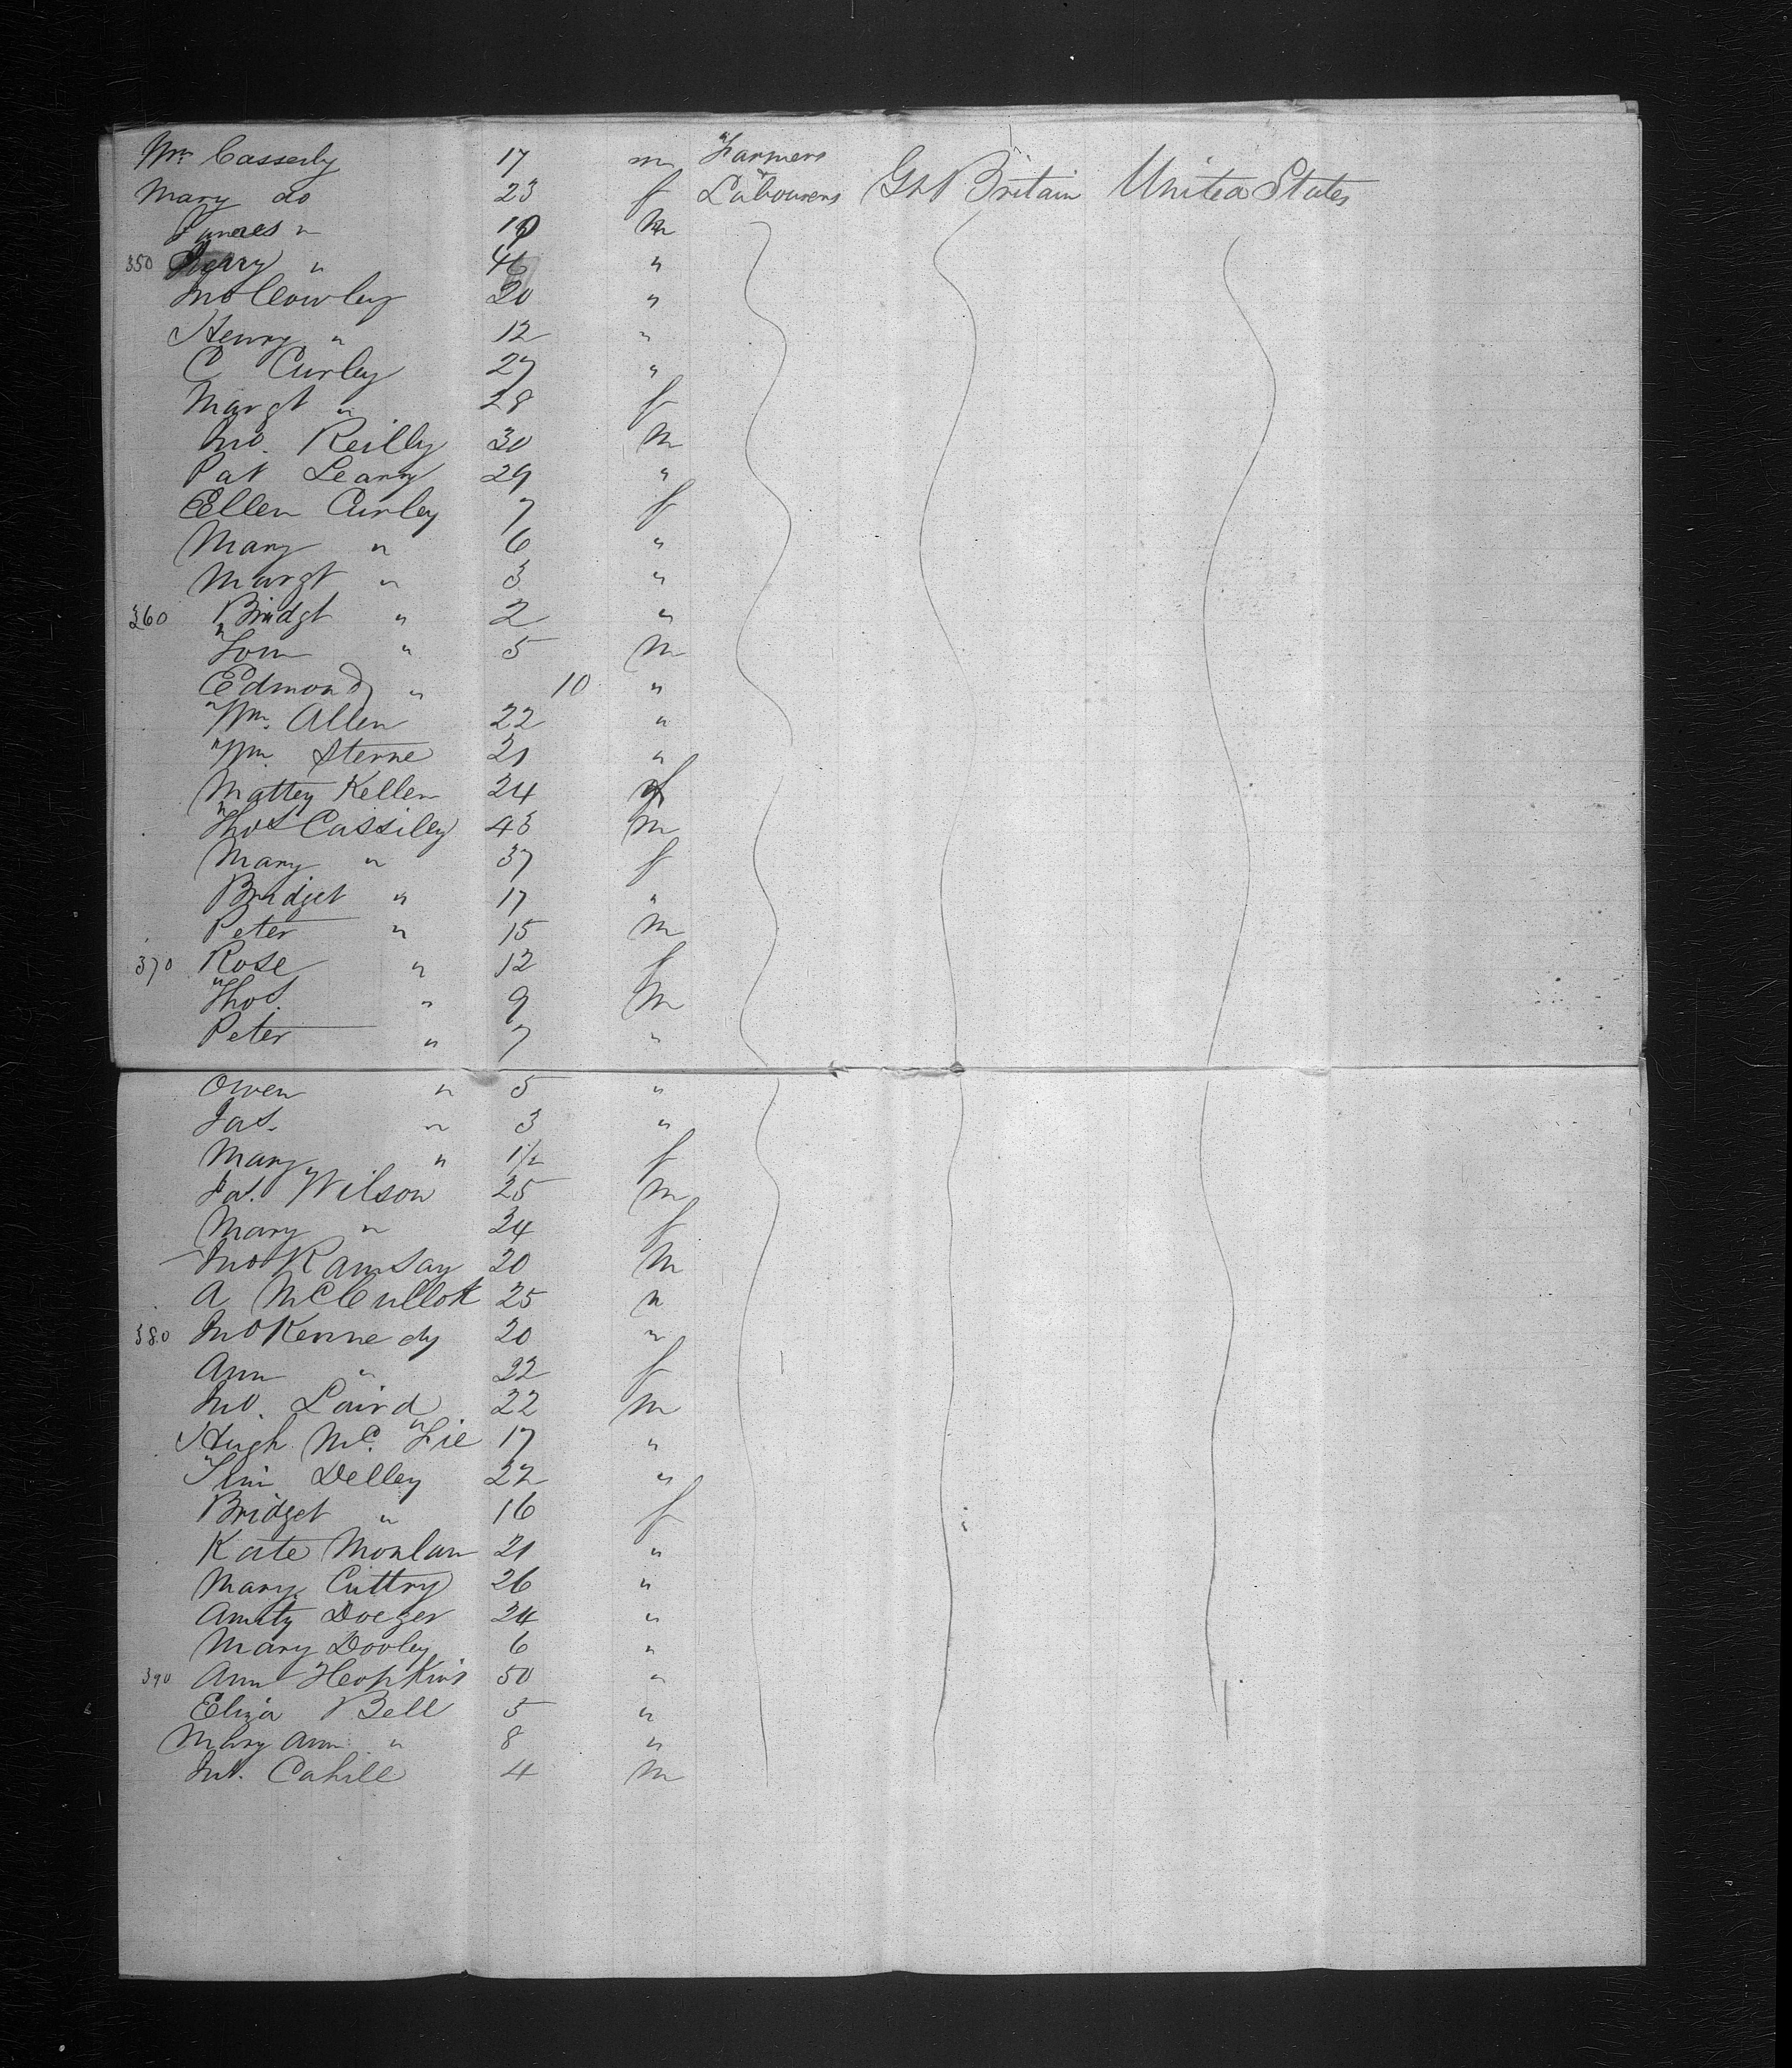 Wm Casserly 17 m Farmers
Mary do 23 f Labourers Gt Britain United States
Frances " 19 m
350 " 46 "
Jno Cowley 20 "
Henry " 12 "
C Curley 27 "
Margt " 28 f
Jno. Reilly 30 m
Pat Leary 29 "
Ellen Curley 7 f
Mary " 6 "
Margt " 3 "
360 Bridgt " 2 "
Tom " 5 m
Edmond " 10 "
Wm. Allen 22 "
Wm. Sterne 21 "
Mattey Kellen 24 f
Thos Cassiley 43 m
Mary " 37 f
Bridget " 17 "
Peter " 15 m
370 Rose " 12 f
Thos. " 9 m
Peter " 7 "
Owen " 5 "
Jas. " 3 "
Mary " 1 1/2 f
Ja. Wilson 25 m
Mary " 24 f
Jno Ramsay 20 m
A McCullok 25 "
380 Jno Kennedy 20 "
Ann " 22 f
Jno. Laird 22 m
Hugh Mc. Fie 17 "
Tim Delley 22 "
Bridget " 16 f
Kate Monlan 21 "
Mary Cuttry 26 "
Amity Doeger 24 "
Mary Dooley 6 "
390 Ann Hopkins 50 "
Eliza Bell 5 "
Mary Ann " 8 "
Jno. Cahill 4 m